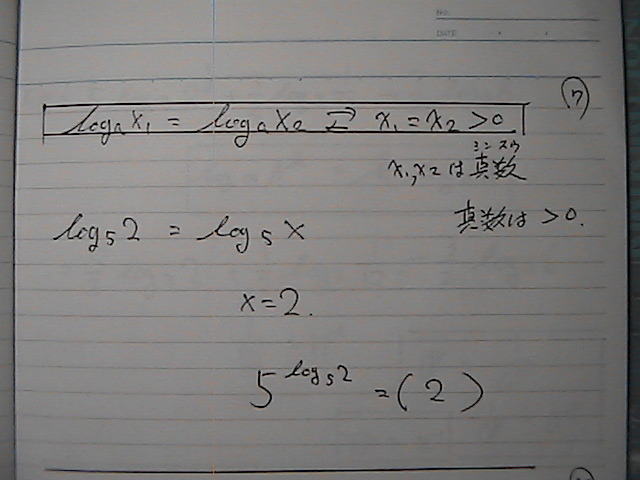 NO.
DATE
(7)
logₐx₁ = logₐx₂ ⇄ x₁ = x₂ > 0
シンスウ
x₁,x₂は真数
真数は > 0.
log₅2 = log₅x
x = 2.
5^log₅2 = ( 2 )